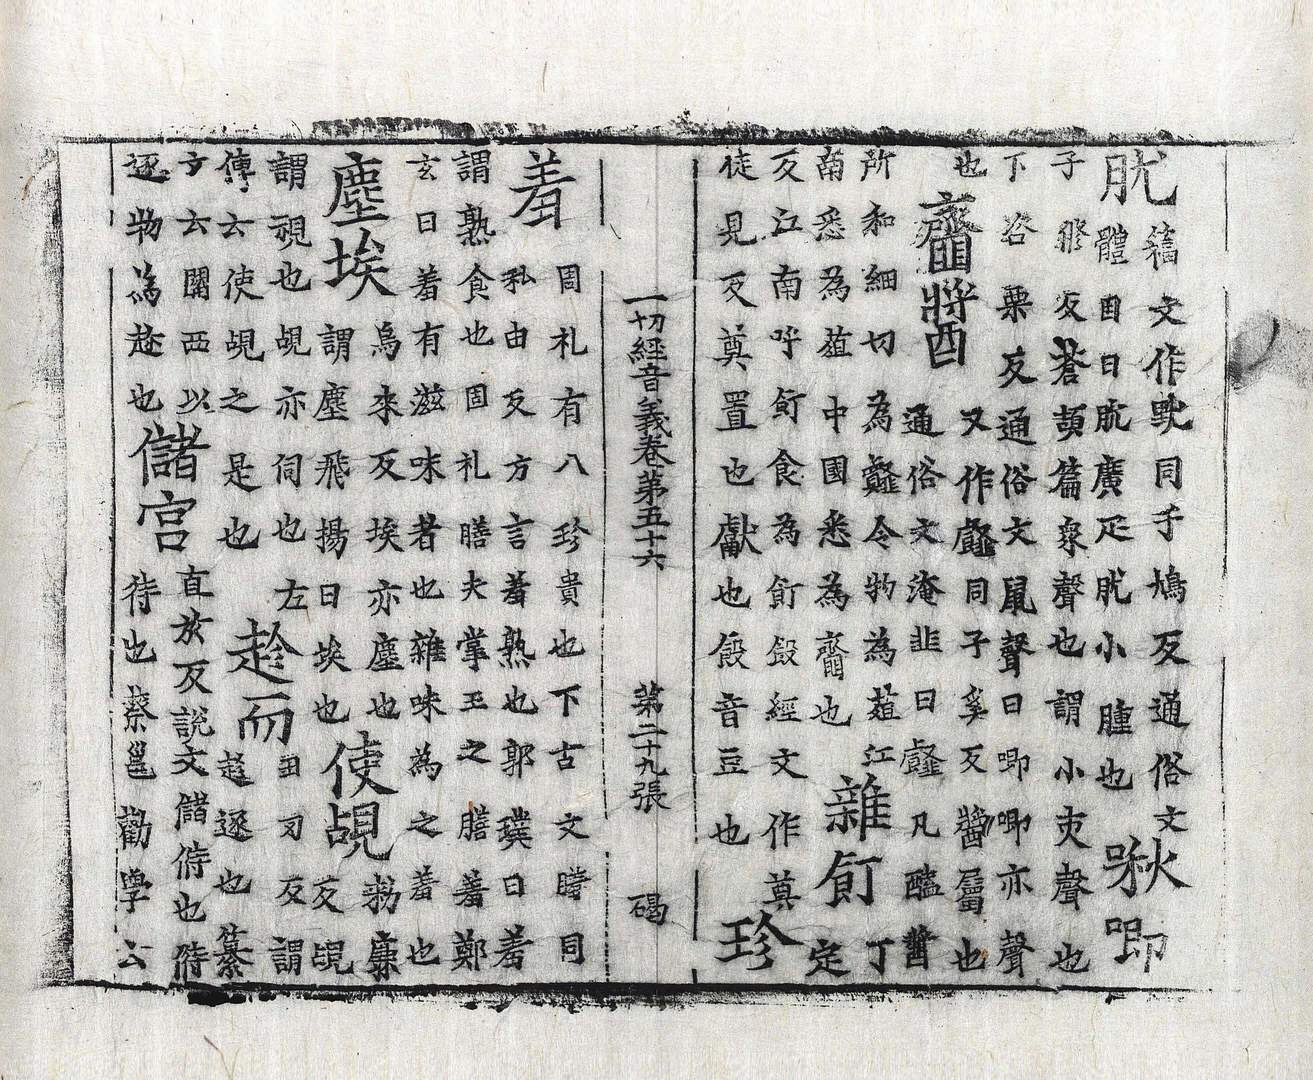 肬籀文作䵨同于鳩反通俗文體囙曰肬廣疋肬小腫也啾唧
子修反蒼頡篇衆聲也謂小吏聲也下咨栗反通俗文鼠聲曰唧唧亦聲
也齏醬又作韲同子奚反醬屬也通俗文淹韭曰韲凡醯醬
所和細切為韲全物為葅江南悉為葅中國悉為齏也雜飣丁定
反江南呼飣食為飣餖經文作奠徒見反奠置也獻也餖音豆也珍
一切經音義卷第五十六　第二十九張　碣
羞周礼有八珍貴也下古文䐓同私由反方言羞熟也郭璞曰羞
謂熟食也周礼膳夫掌王之膳羞鄭玄曰羞有滋味者也雜味為之羞也
塵埃烏來反埃亦塵也謂塵飛揚曰埃也使覘勑廉反覘
謂視也覘亦伺也左傳云使覘之是也趁而丑刃反謂趁逐也纂
文云關西以逐物為趁也儲宮直於反說文儲偫也偫待也蔡邕勸學云